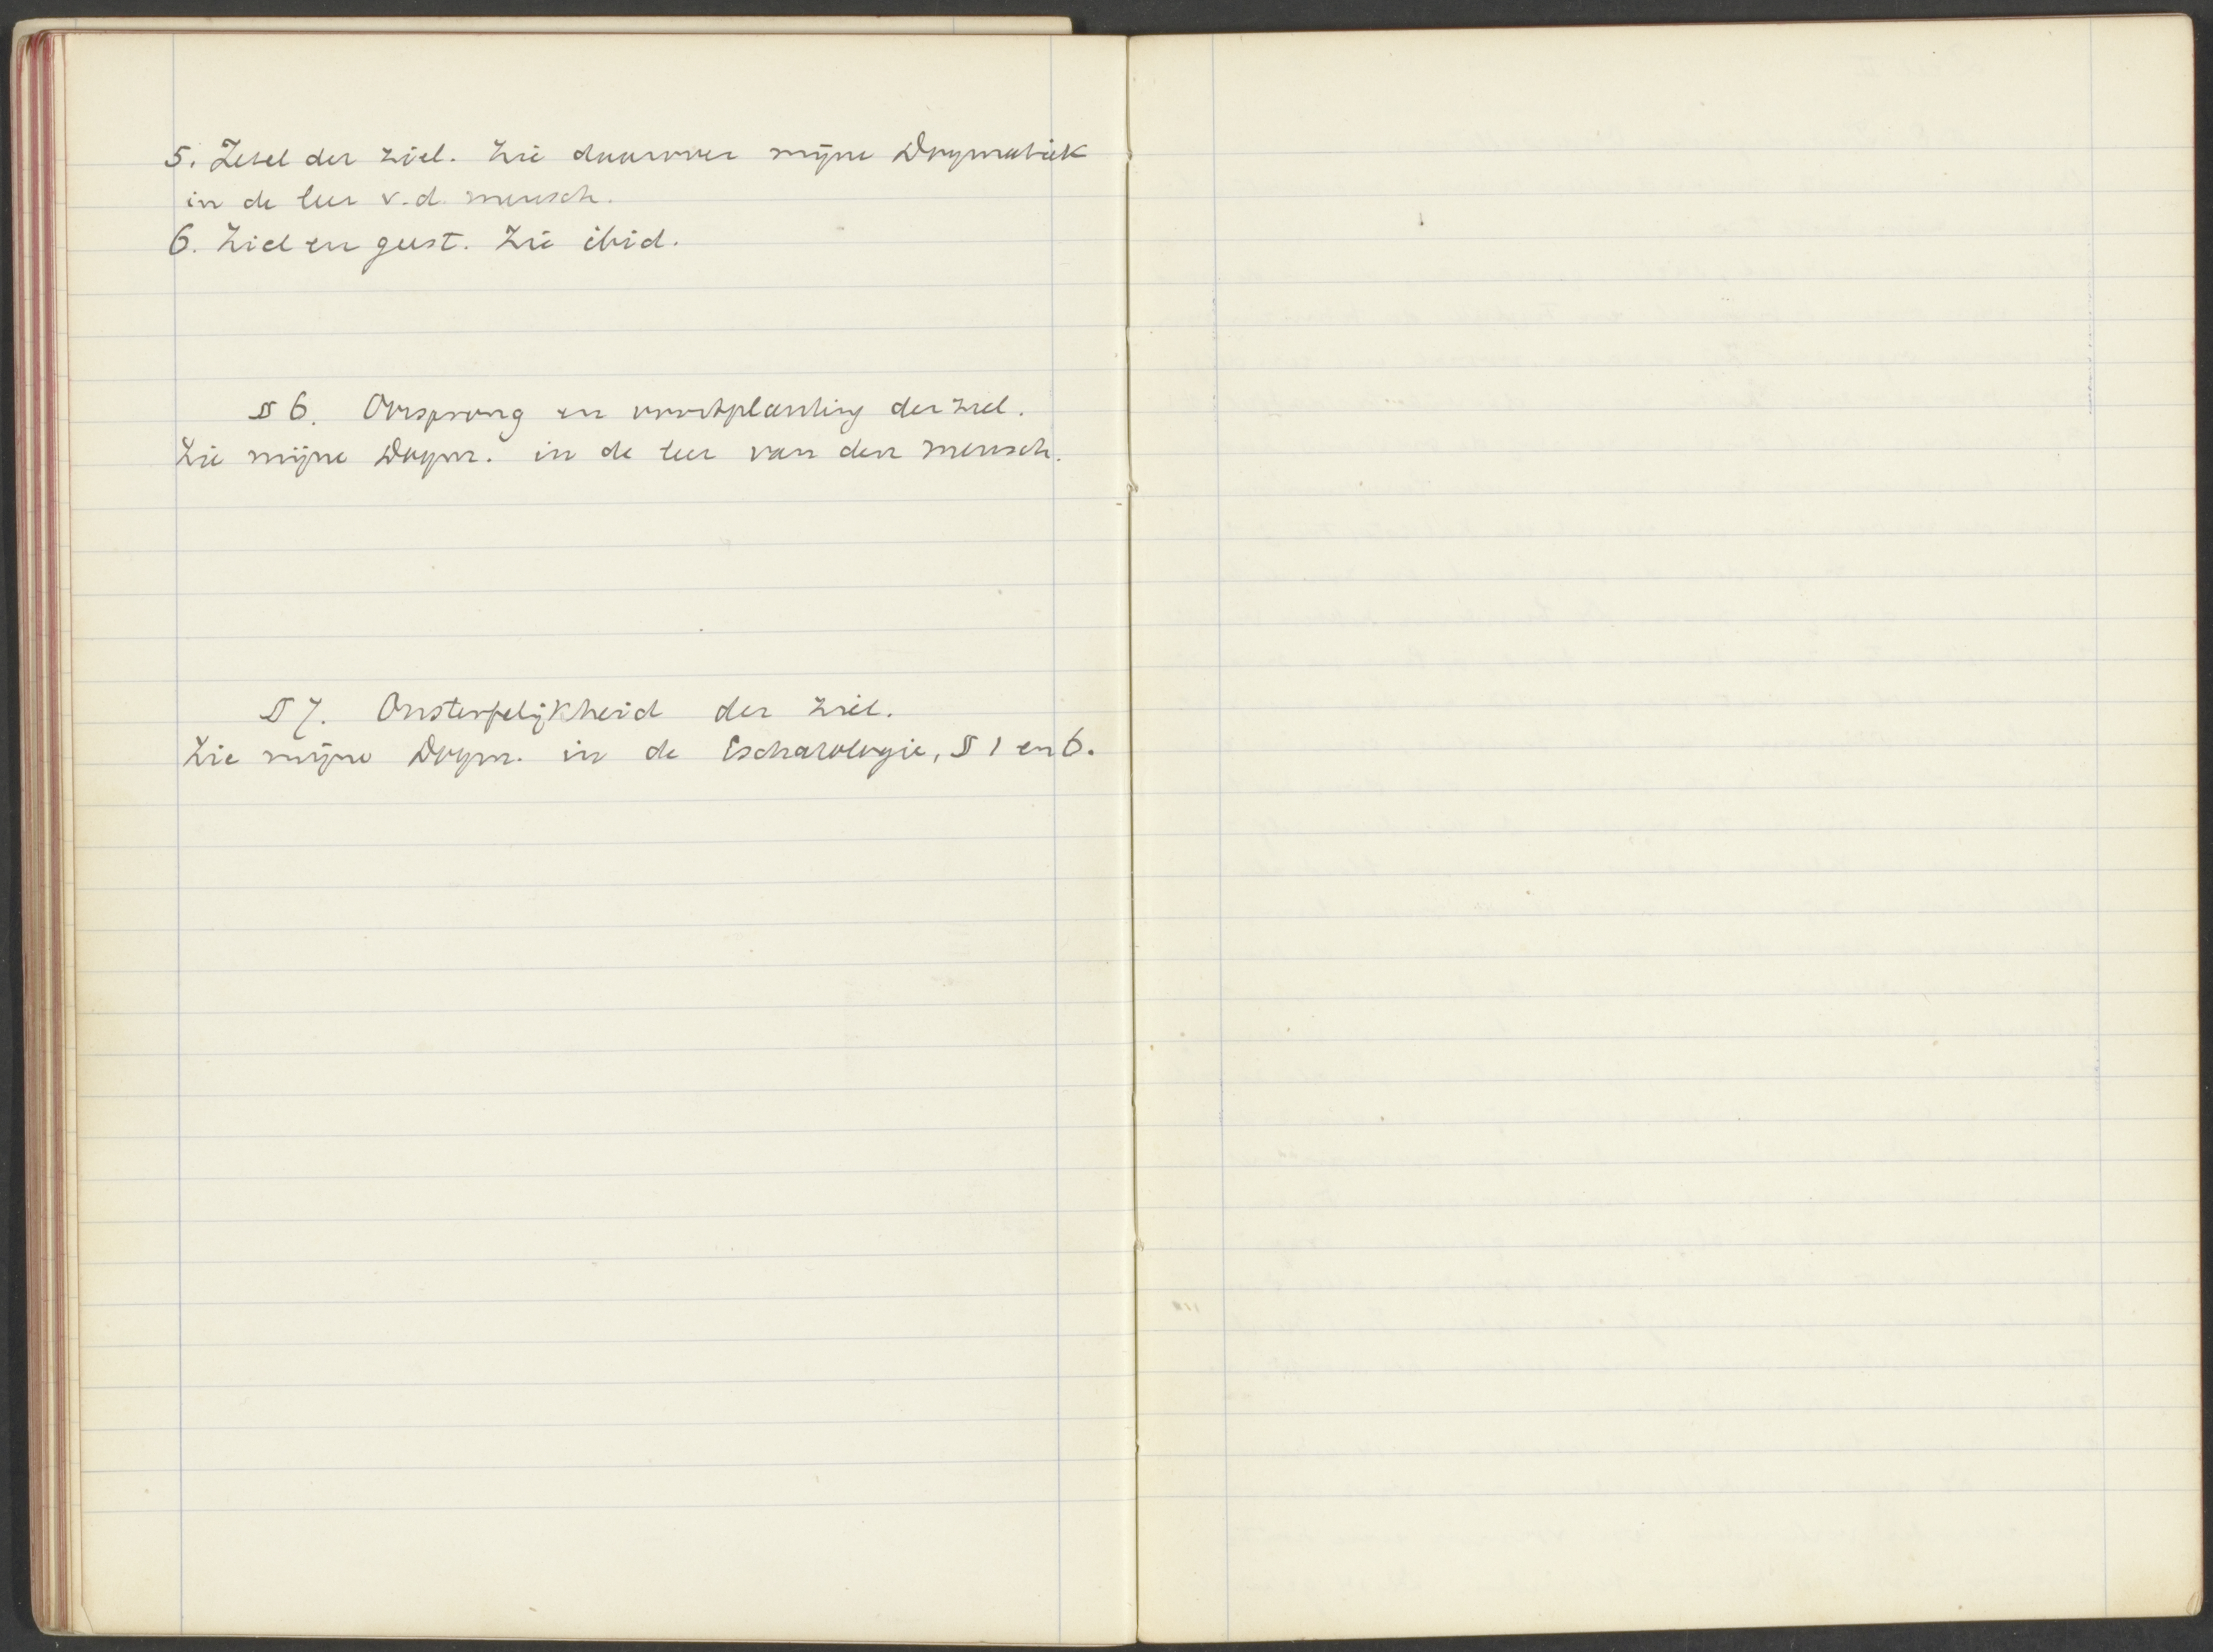 5. Zetel der ziel. Zie daarover mijne Dogmatiek
in de leer v.d. mensch.
6. Ziel en geest. Zie ibid.
§ 6. Oorsprong en voortplanting der ziel.
Zie mijne Dogm. in de leer van den mensch.
§ 7. Onsterfelijkheid der ziel.
Zie mijne Dogm. in de Eschatologie, § 1 en 6.